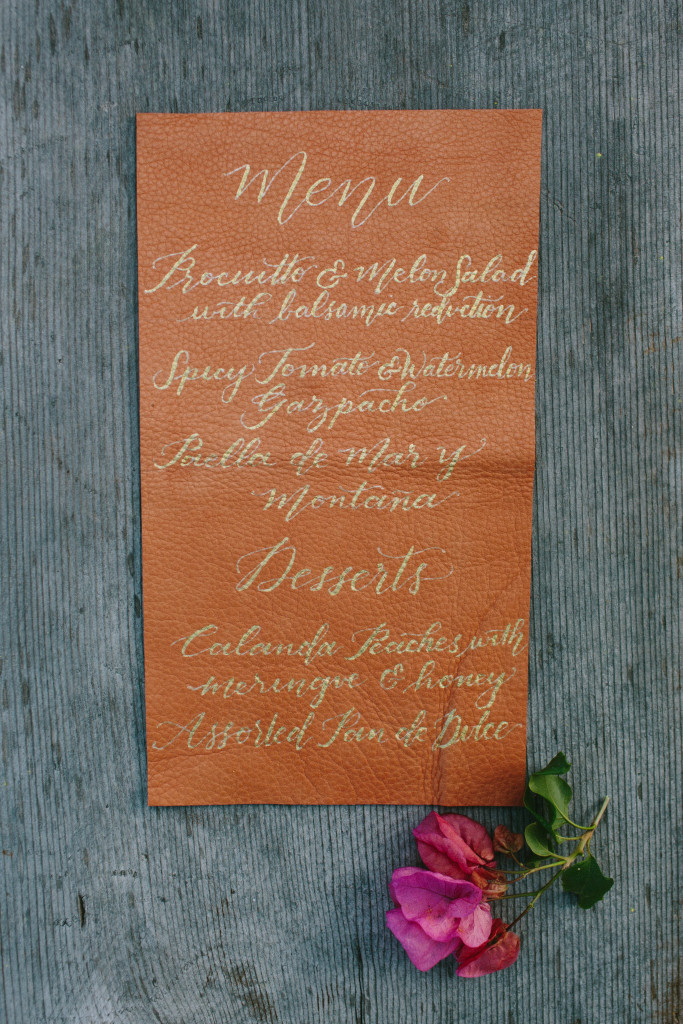 Menu
Procuitto & Melon Salad
with balsamic reduction
Spicy Tomato & Watermelon
Gazpacho
Paella de Mar y
Montaña
Desserts
Calanda Peaches with
meringue & honey
Assorted Pan de Dulce